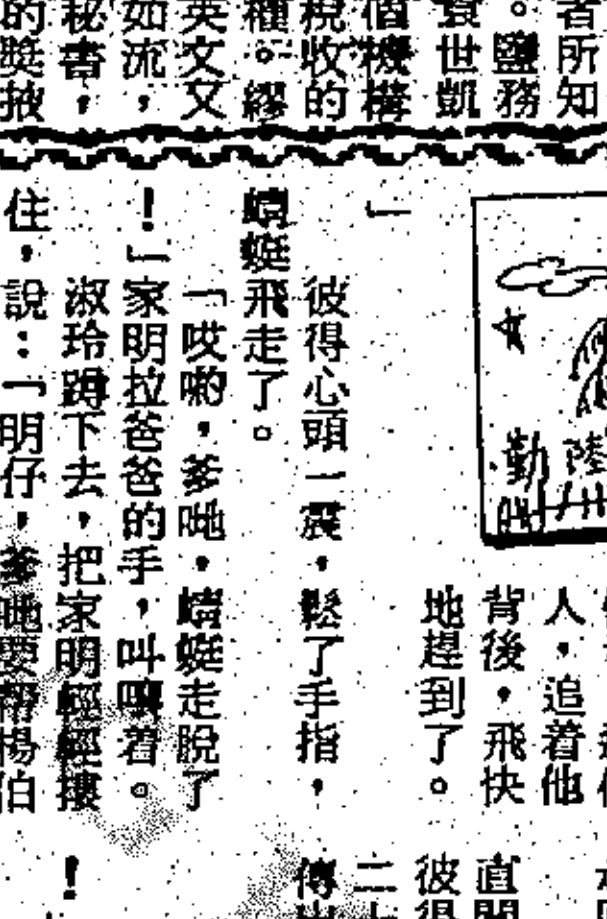 者所知
。鹽務
袁世凱
個機構
稅收的
種。繆
英文又
如流，
秘書，
的獎掖
陸
勤
人，追着他
背後，飛快
地趕到了。
」
彼得心頭一震，鬆了手指，
蜻蜓飛走了。
「哎喲，爹哋，蜻蜓走脫了
！」家明拉爸爸的手，叫嚷着。
淑玲蹲下去，把家明輕輕摟
住，說：「明仔，爹哋要幫楊伯
直
彼得
二
傳
！